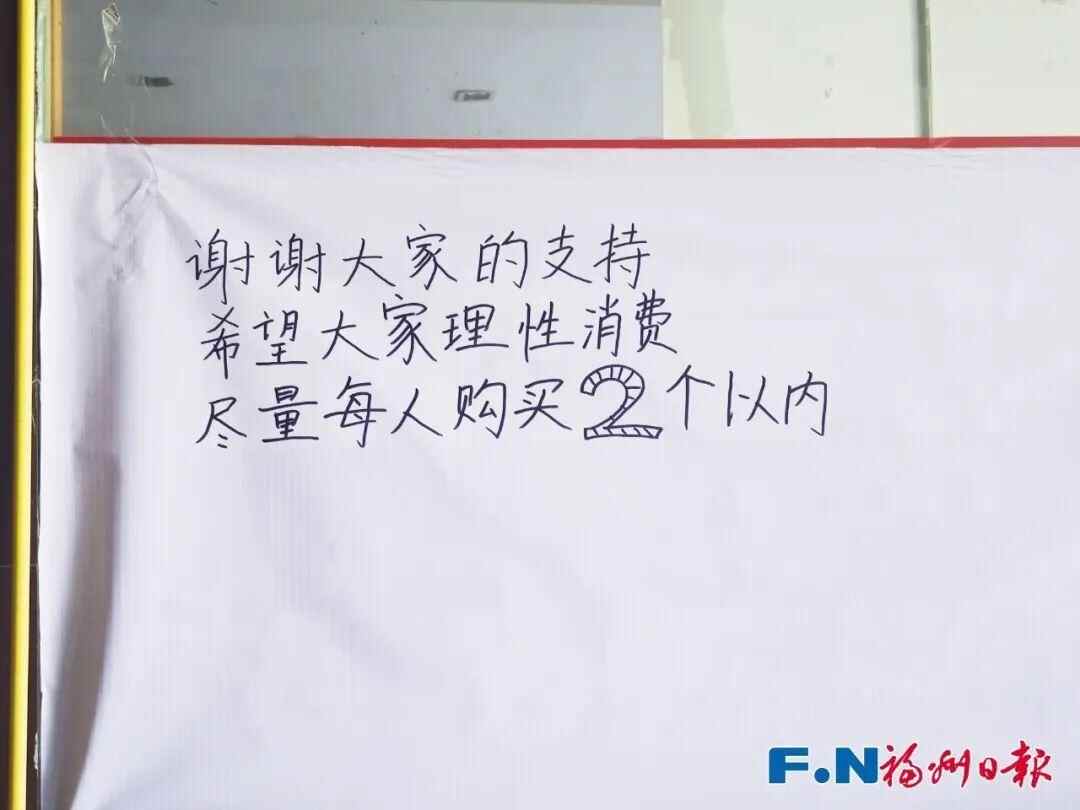 谢谢大家的支持
希望大家理性消费
尽量每人购买2个以内
F.N福州日报